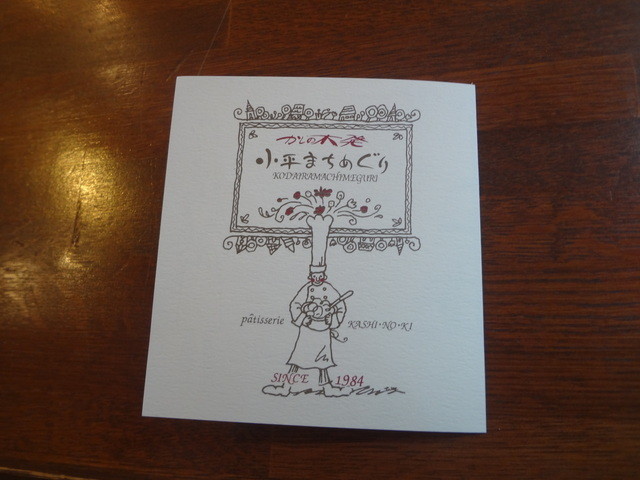 かしの木発
小平まちめぐり
KODAIRAMACHIMEGURI
pâtisserie KASHI・NO・KI
SINCE 1984